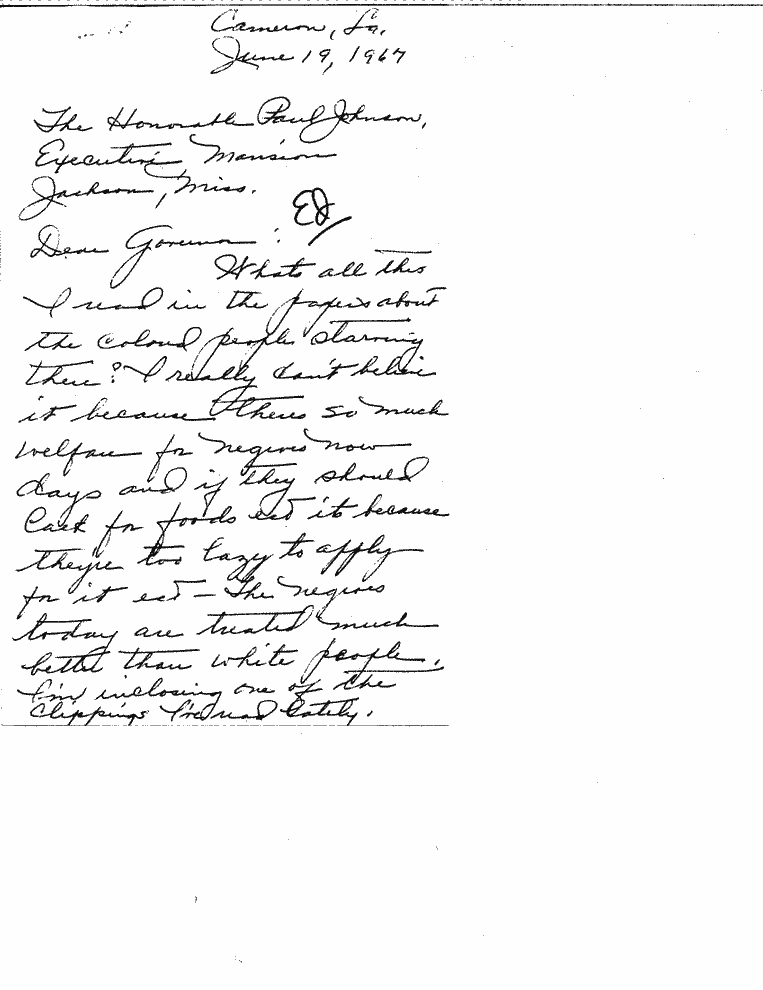 Cameron, La.
June 19, 1967
The Honorable Paul Johnson,
Executive Mansion
Jackson, Miss.
EJ
Dear Governor :
Whats all this
I read in the papers about
the colored people starving
there? I really don't believe
it because theres so much
welfare for negroes now
days and if they should
lack for foods ect its because
they're too lazy to apply
for it ect - The negroes
today are treated much
better than white people.
I'm inclosing one of the
clippings I've read lately.